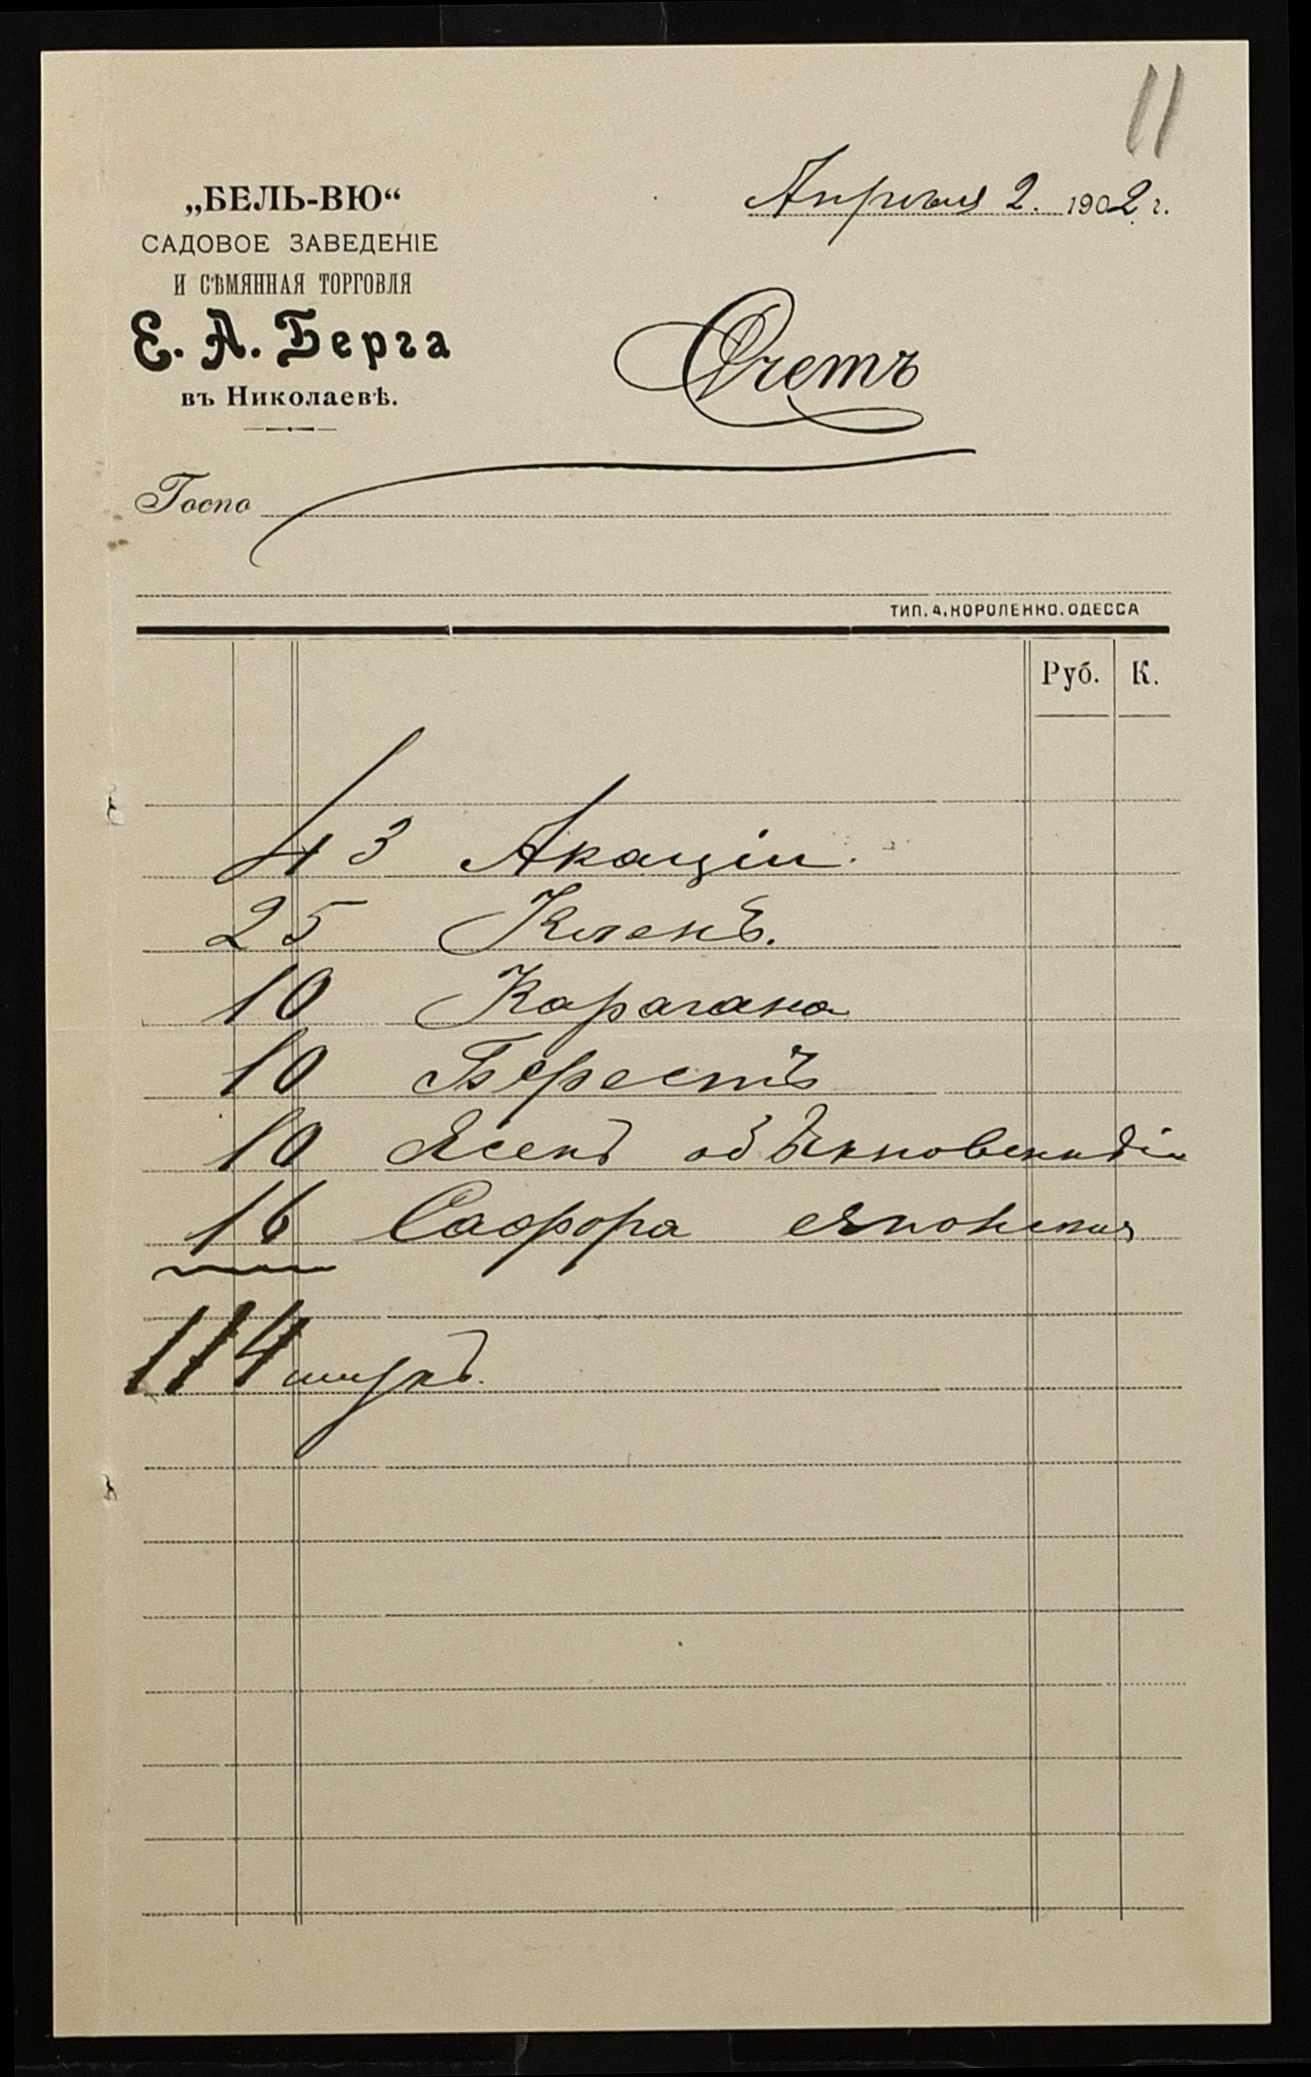 11
„БЕЛЬ-ВЮ“
САДОВОЕ ЗАВЕДЕНІЕ
И СѢМЯННАЯ ТОРГОВЛЯ
Е. А. Берга
въ Николаевѣ.
Апрѣля 2. 1902 г.
Счетъ
Госпо
ТИП. А. КОРОЛЕНКО. ОДЕССА
Руб. К.
43 Акаціи.
25 Кленъ.
10 Карагана
10 Берестъ
10 Ясень обыкновенный
16 Сафора Японская
114 штукъ.